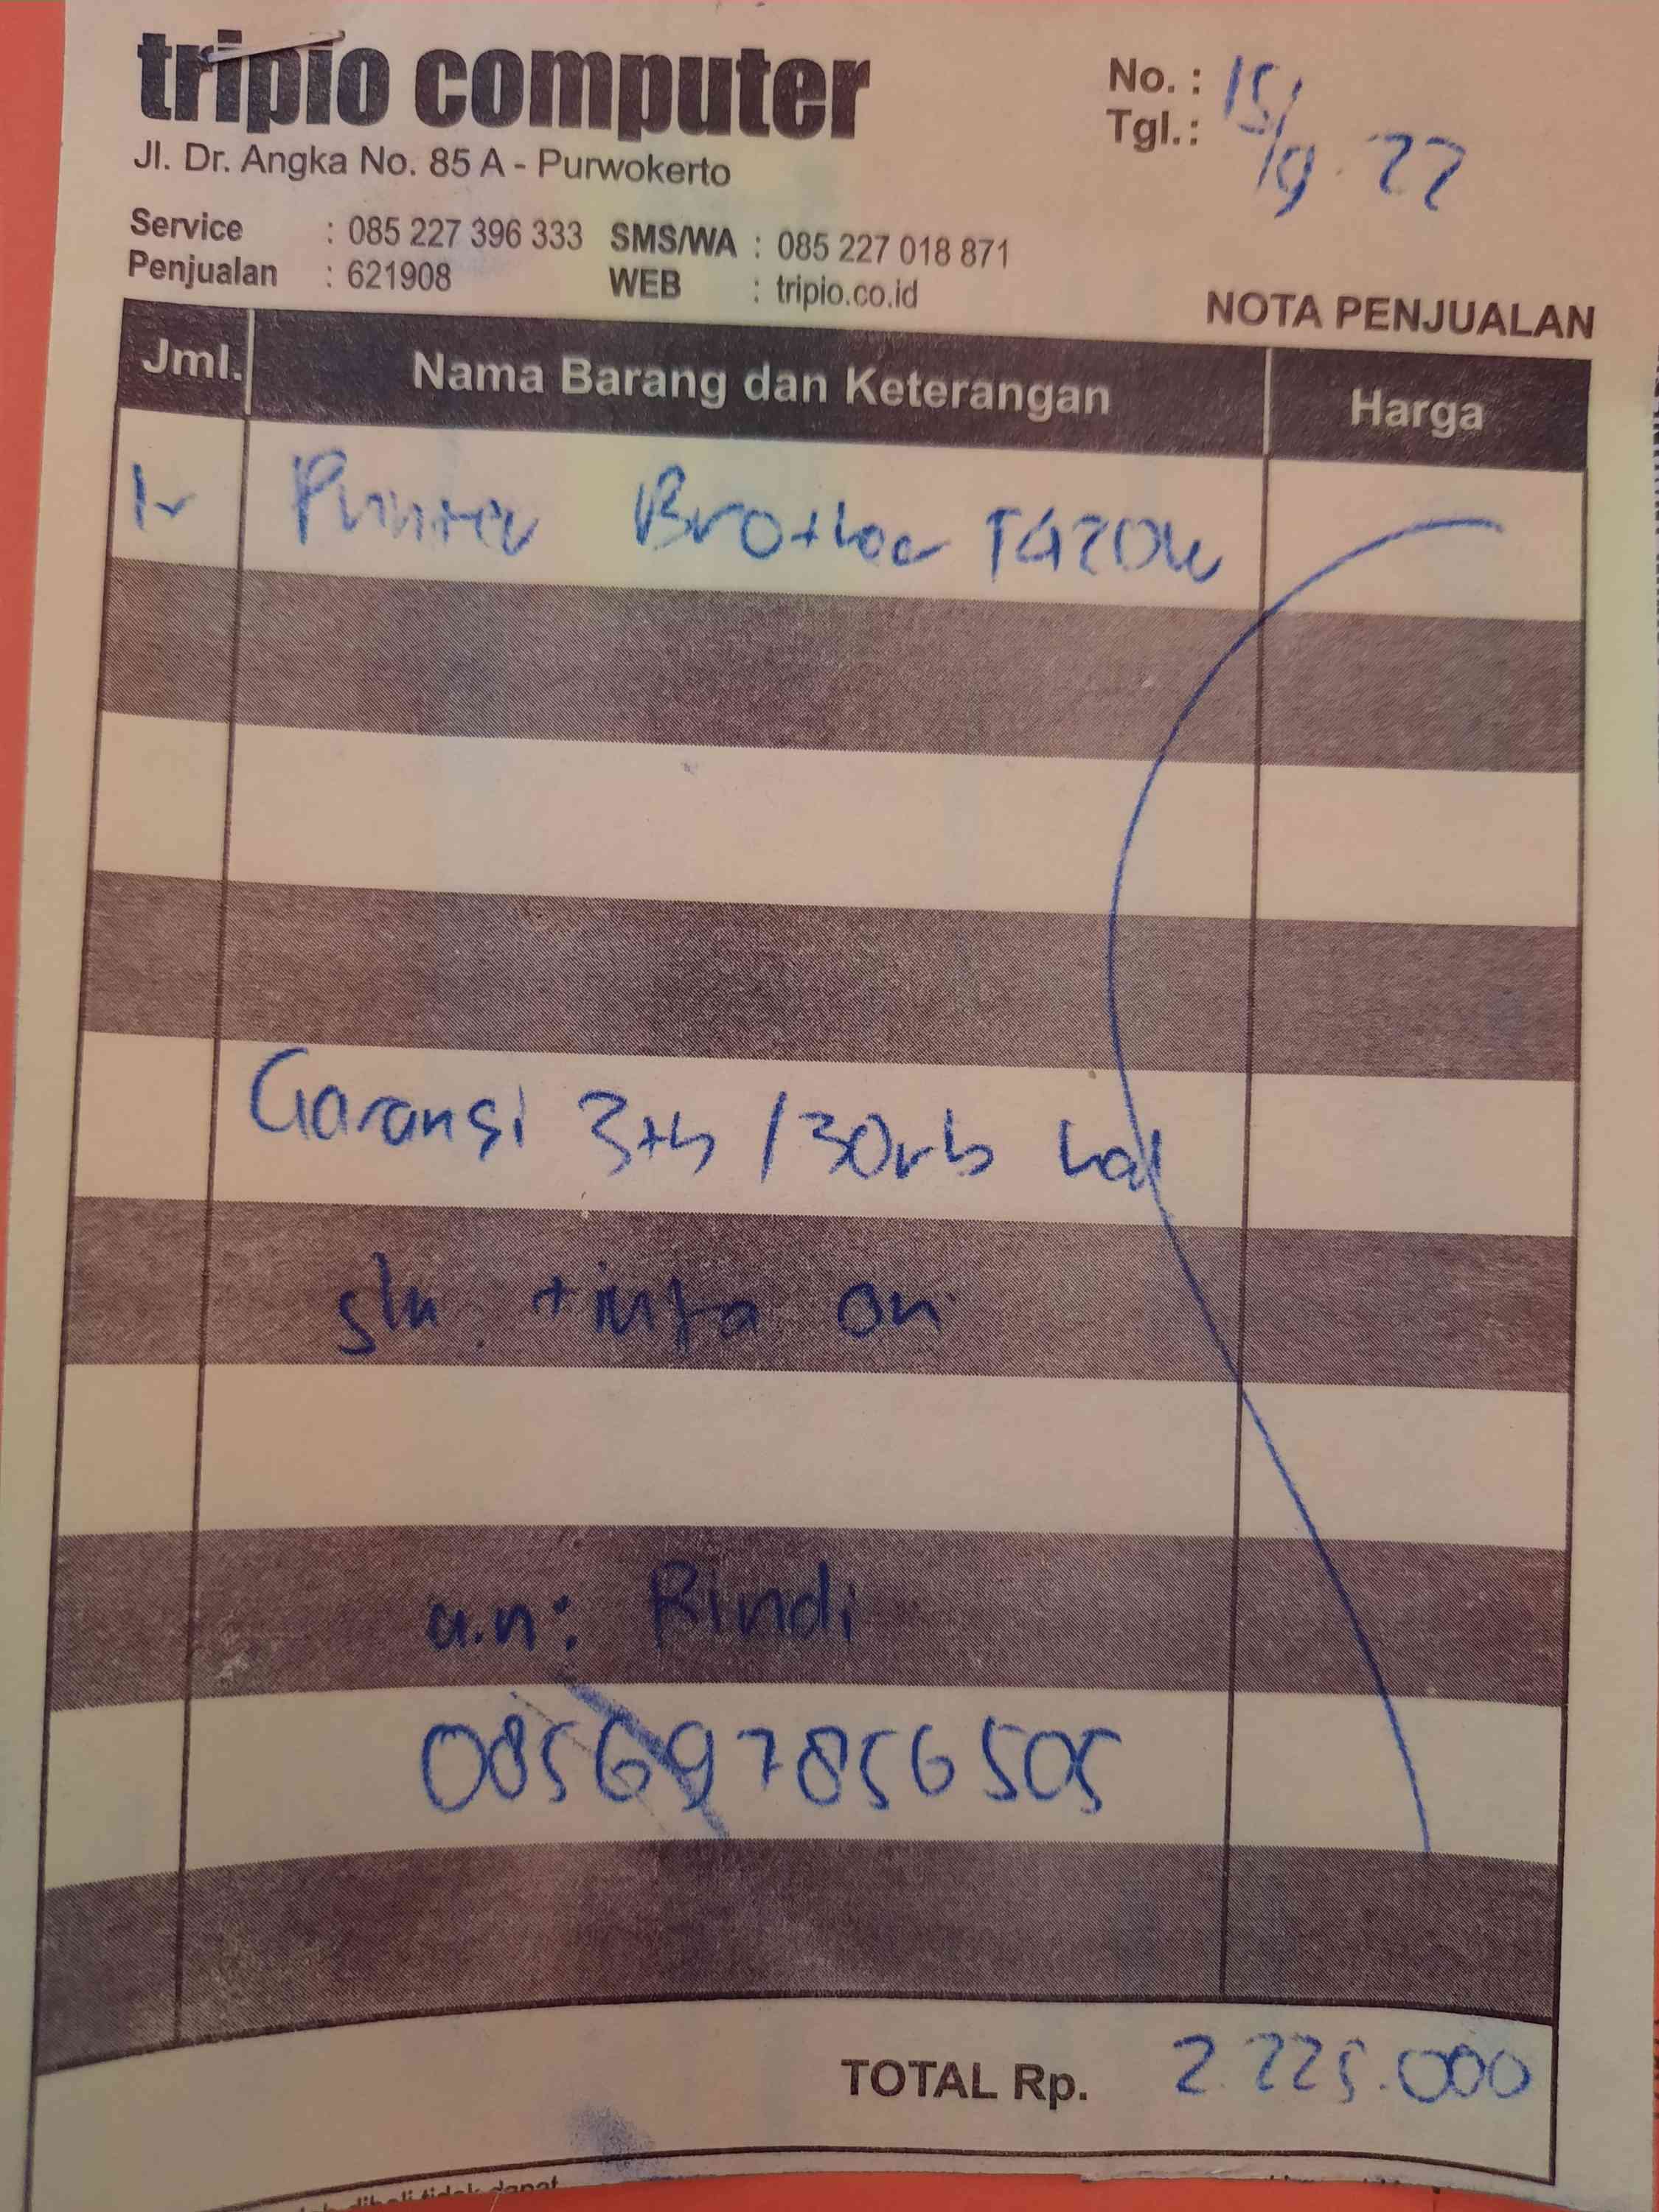 tripio computer
Jl. Dr. Angka No. 85 A - Purwokerto
Service : 085 227 396 333 SMS/WA : 085 227 018 871
Penjualan : 621908 WEB : tripio.co.id
No. :
Tgl. : 15/9 . 22
NOTA PENJUALAN
Jml. Nama Barang dan Keterangan Harga
1 Printer Brother T420W
Garansi 3th /30rb hal
tinta on
a.n: Rindi
085697856505
TOTAL Rp. 2.225.000
dibeli tidak dapat